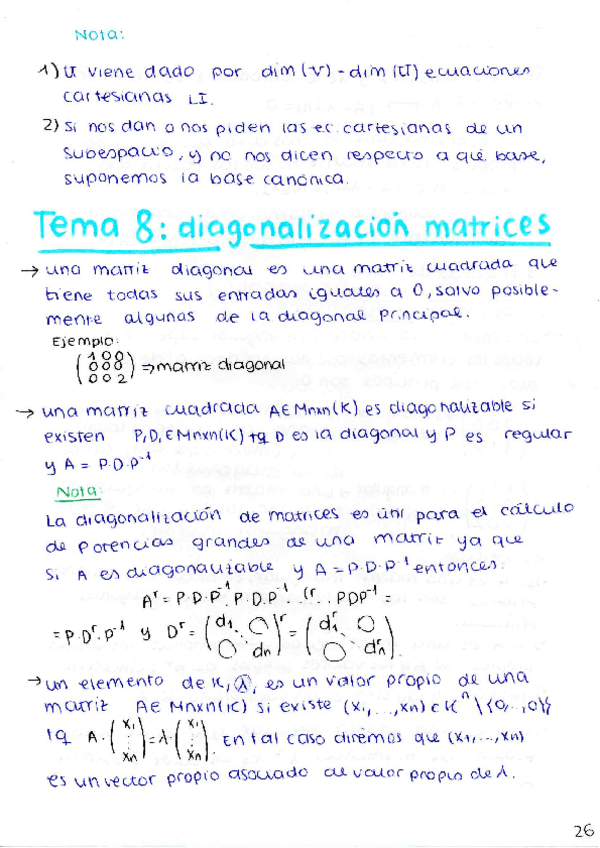 Nota:
1) U viene dado por dim(V)-dim(U) ecuaciones
cartesianas LI.
2) Si nos dan o nos piden las ec. cartesianas de un
subespacio, y no nos dicen respecto a qué base,
suponemos la base canónica.
Tema 8: diagonalización matrices
→ una matriz diagonal es una matriz cuadrada que
tiene todas sus entradas iguales a 0, salvo posible-
mente algunas de la diagonal principal.
Ejemplo:
(1 0 0
0 0 0
0 0 2) ⇒ matriz diagonal
→ una matriz cuadrada A∈Mnxn(K) es diagonalizable si
existen P,D,∈Mnxn(K) tq D es la diagonal y P es regular
y A = P·D·P⁻¹
Nota:
La diagonalización de matrices es útil para el cálculo
de potencias grandes de una matriz ya que
si A es diagonalizable y A = P·D·P⁻¹ entonces:
Aʳ = P·D·P⁻¹·P·D·P⁻¹·(r...PDP⁻¹ =
= P·Dʳ·P⁻¹ y Dʳ = (d1 ⋱ dn)ʳ = (d1ʳ ⋱ dnʳ)
→ un elemento de K, λ, es un valor propio de una
matriz A∈Mnxn(K) si existe (x1,...,xn)∈Kⁿ\{0,..,0}}
tq A·(x1 ⋮ xn) = λ·(x1 ⋮ xn). En tal caso diremos que (x1,...,xn)
es un vector propio asociado al valor propio de λ.
26